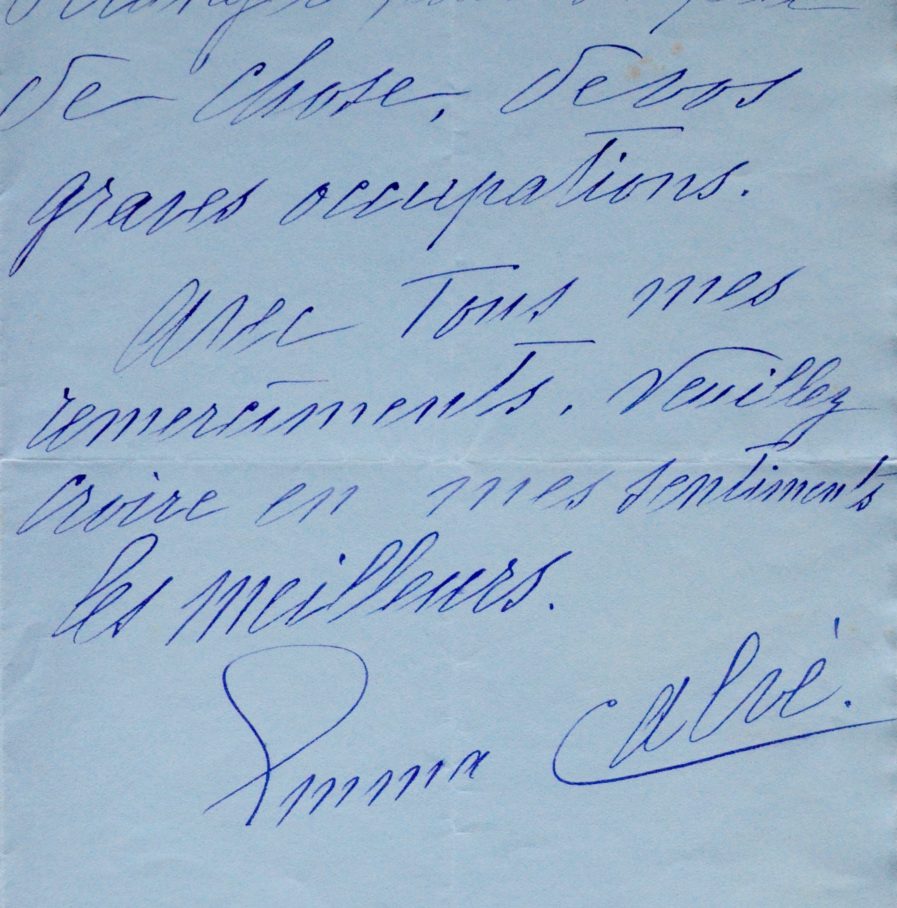 de chose, de vos
graves occupations.
Avec tous mes
remercîments, veuillez
croire en mes sentiments
les meilleurs.
Emma Calvé.